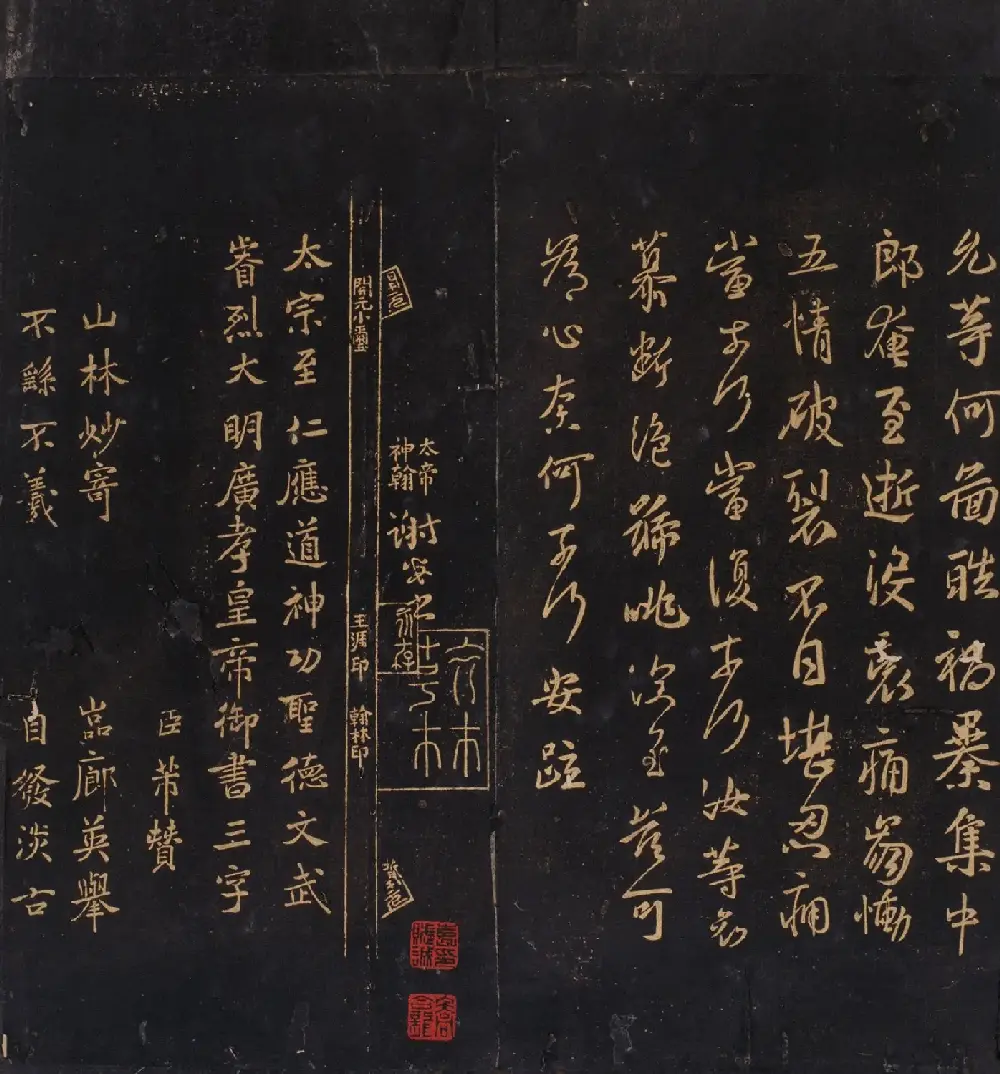 允等何圖酷禍暴集中
郎奄至逝没哀痛崩慟
五情破裂不自堪忍痛
當奈何當復奈何汝等哀
慕斷絶號咷深至豈可
為心奈何奈何安疏
太帝
神翰
謝安
翰林
開元小璽
王涯印
翰林印
太宗至仁應道神功聖德文武
睿烈大明廣孝皇帝御書三字
臣芾贊
山林妙寄 巖廊英舉
不繇不羲 自發淡古